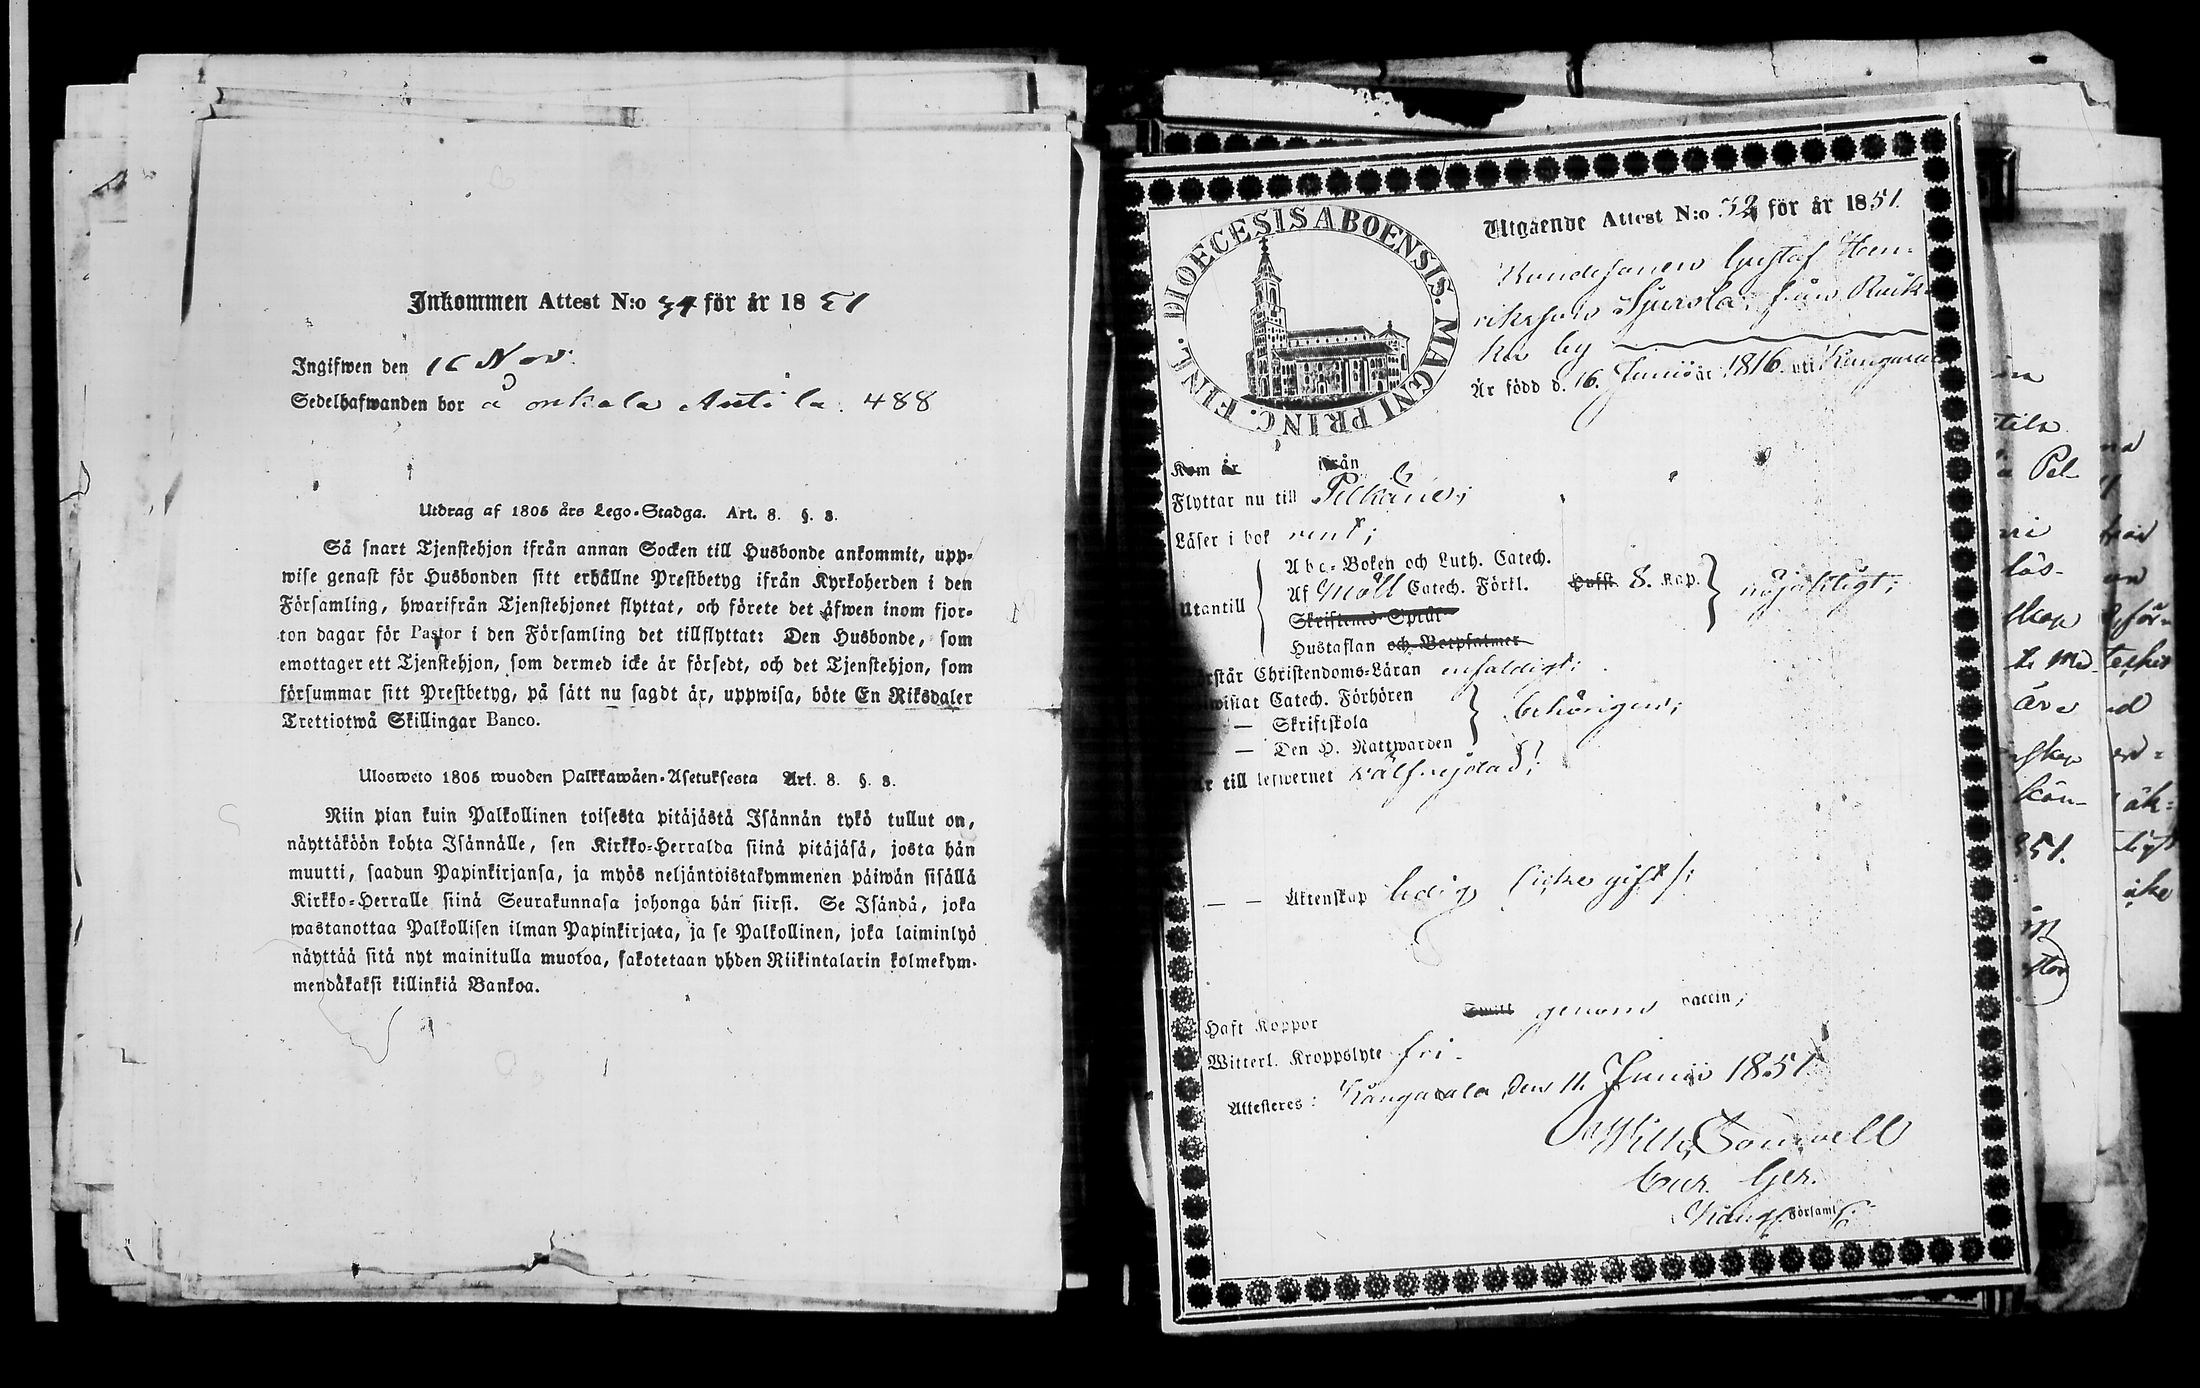 Inkommen Attest N:o 34 för år 1851
Ingifwen den 16 Nov.
Sedelhafwanden bor å onkala Antila. 488
Utdrag af 1805 års Lego-Stadga. Art. 8. §. 8.
Så snart Tjenstehjon ifrån annan Socken till Husbonde ankommit, upp-
wise genast för Husbonden sitt erhållne Prestbetyg ifrån Kyrkoherden i den
Församling, hwarifrån Tjenstehjonet flyttat, och förete det äfwen inom fjor-
ton dagar för Pastor i den Församling det tillflyttat: Den Husbonde, som
emottager ett Tjenstehjon, som dermed icke är försedt, och det Tjenstehjon, som
försummar sitt Prestbetyg, på sätt nu sagdt är, uppwisa, böte En Riksdaler
Trettiotwå Skillingar Banco.
Ulosweto 1805 wuoden Palkkawäen-Asetuksesta Art. 8. §. 8.
Niin pian kuin Palkollinen toisesta pitäjästä Isännän tykö tullut on,
näyttäköön kohta Isännälle, sen Kirkko-Herralda siinä pitäjäsä, josta hän
muutti, saadun Papinkirjansa, ja myös neljäntoistakymmenen päiwän sisällä
Kirkko-Herralle siinä Seurakunnasa johonga hän siirsi. Se Isändä, joka
wastanottaa Palkollisen ilman Papinkirjata, ja se Palkollinen, joka laiminlyö
näyttää sitä nyt mainitulla muotoa, sakotetaan yhden Riikintalarin kolmekym-
mendäkaksi killinkiä Bankoa.
DIOECESIS ABOENSIS. MAGNI PRINC. FINL.
Utgående Attest N:o 32 för år 1851.
Bondesonen Gustaf Hen-
riksson Sjurola, från Ruik-
ka by
Är född d. 16. Junii år 1816. uti Kangasala
Kom år ifrån
Flyttar nu till Pelkäne;
Läser i bok rent;
Utantill
Abc-Boken och Luth. Catech.
Af Möll Catech. Förkl. Hufst. 8. Kap.
nöjaktigt;
Skriftens-Språk
Hustaflan och Botpsalmer
Förstår Christendoms-Läran enfaldigt;
Bewistat Catech. Förhören
— — Skriftskola
behörigen;
— — Den H. Nattwarden
Är till lefwernet wälfrejdad;
— — Äktenskap ledig (icke gift);
Haft Koppor genom vaccin;
Witterl. Kroppslyte fri.
Attesteres: Kangasala den 11 Junii 1851
Cur. Ger.
Kang. Församl.